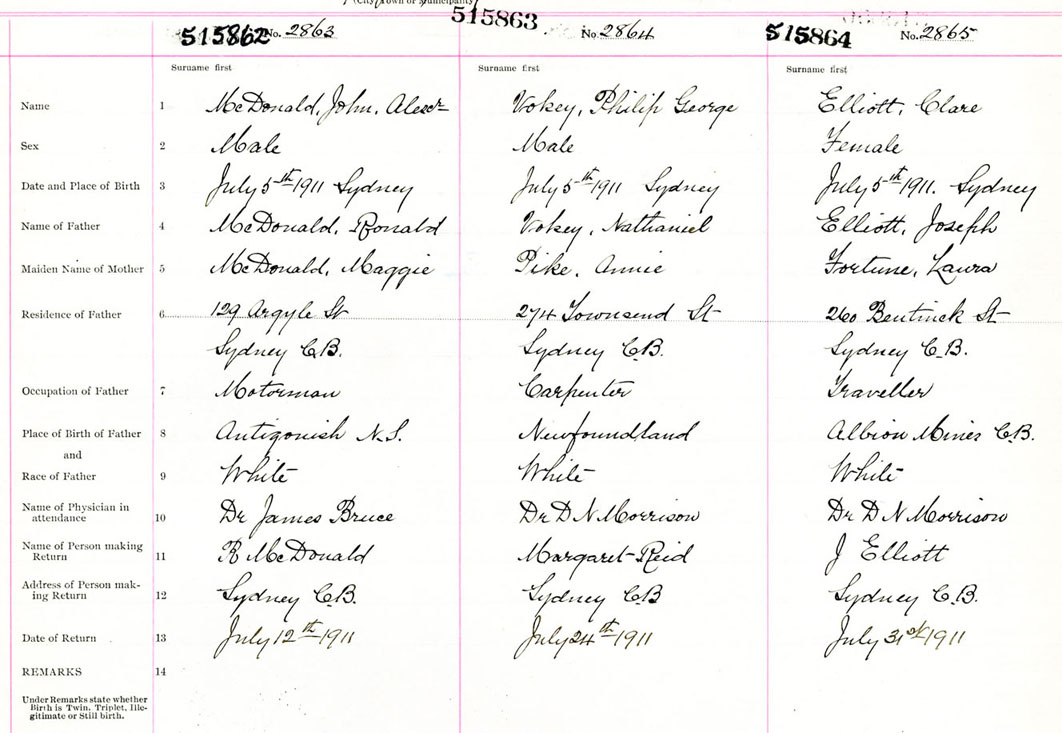 (City, Town or Municipality)
515862 No. 2863 515863 No. 2864 515864 No. 2865
Surname first Surname first Surname first
Name 1 McDonald, John, Alexr Vokey, Philip George Elliott, Clare
Sex 2 Male Male Female
Date and Place of Birth 3 July 5th 1911 Sydney July 5th 1911 Sydney July 5th 1911. Sydney
Name of Father 4 McDonald, Ronald Vokey, Nathaniel Elliott, Joseph
Maiden Name of Mother 5 McDonald, Maggie Pike, Annie Fortune, Laura
Residence of Father 6 129 Argyle St 274 Townsend St 260 Bentinck St
Sydney C.B. Sydney C.B. Sydney C.B.
Occupation of Father 7 Motorman Carpenter Traveller
Place of Birth of Father 8 Antigonish N.S. Newfoundland Albion Mines C.B.
and
Race of Father 9 White White White
Name of Physician in
attendance 10 Dr James Bruce Dr D N Morrison Dr D N Morrison
Name of Person making
Return 11 R McDonald Margaret Reid J Elliott
Address of Person mak-
ing Return 12 Sydney C.B. Sydney C.B Sydney C.B.
Date of Return 13 July 12th 1911 July 24th 1911 July 31st 1911
REMARKS 14
Under Remarks state whether
Birth is Twin, Triplet, Ille-
gitimate or Still birth.